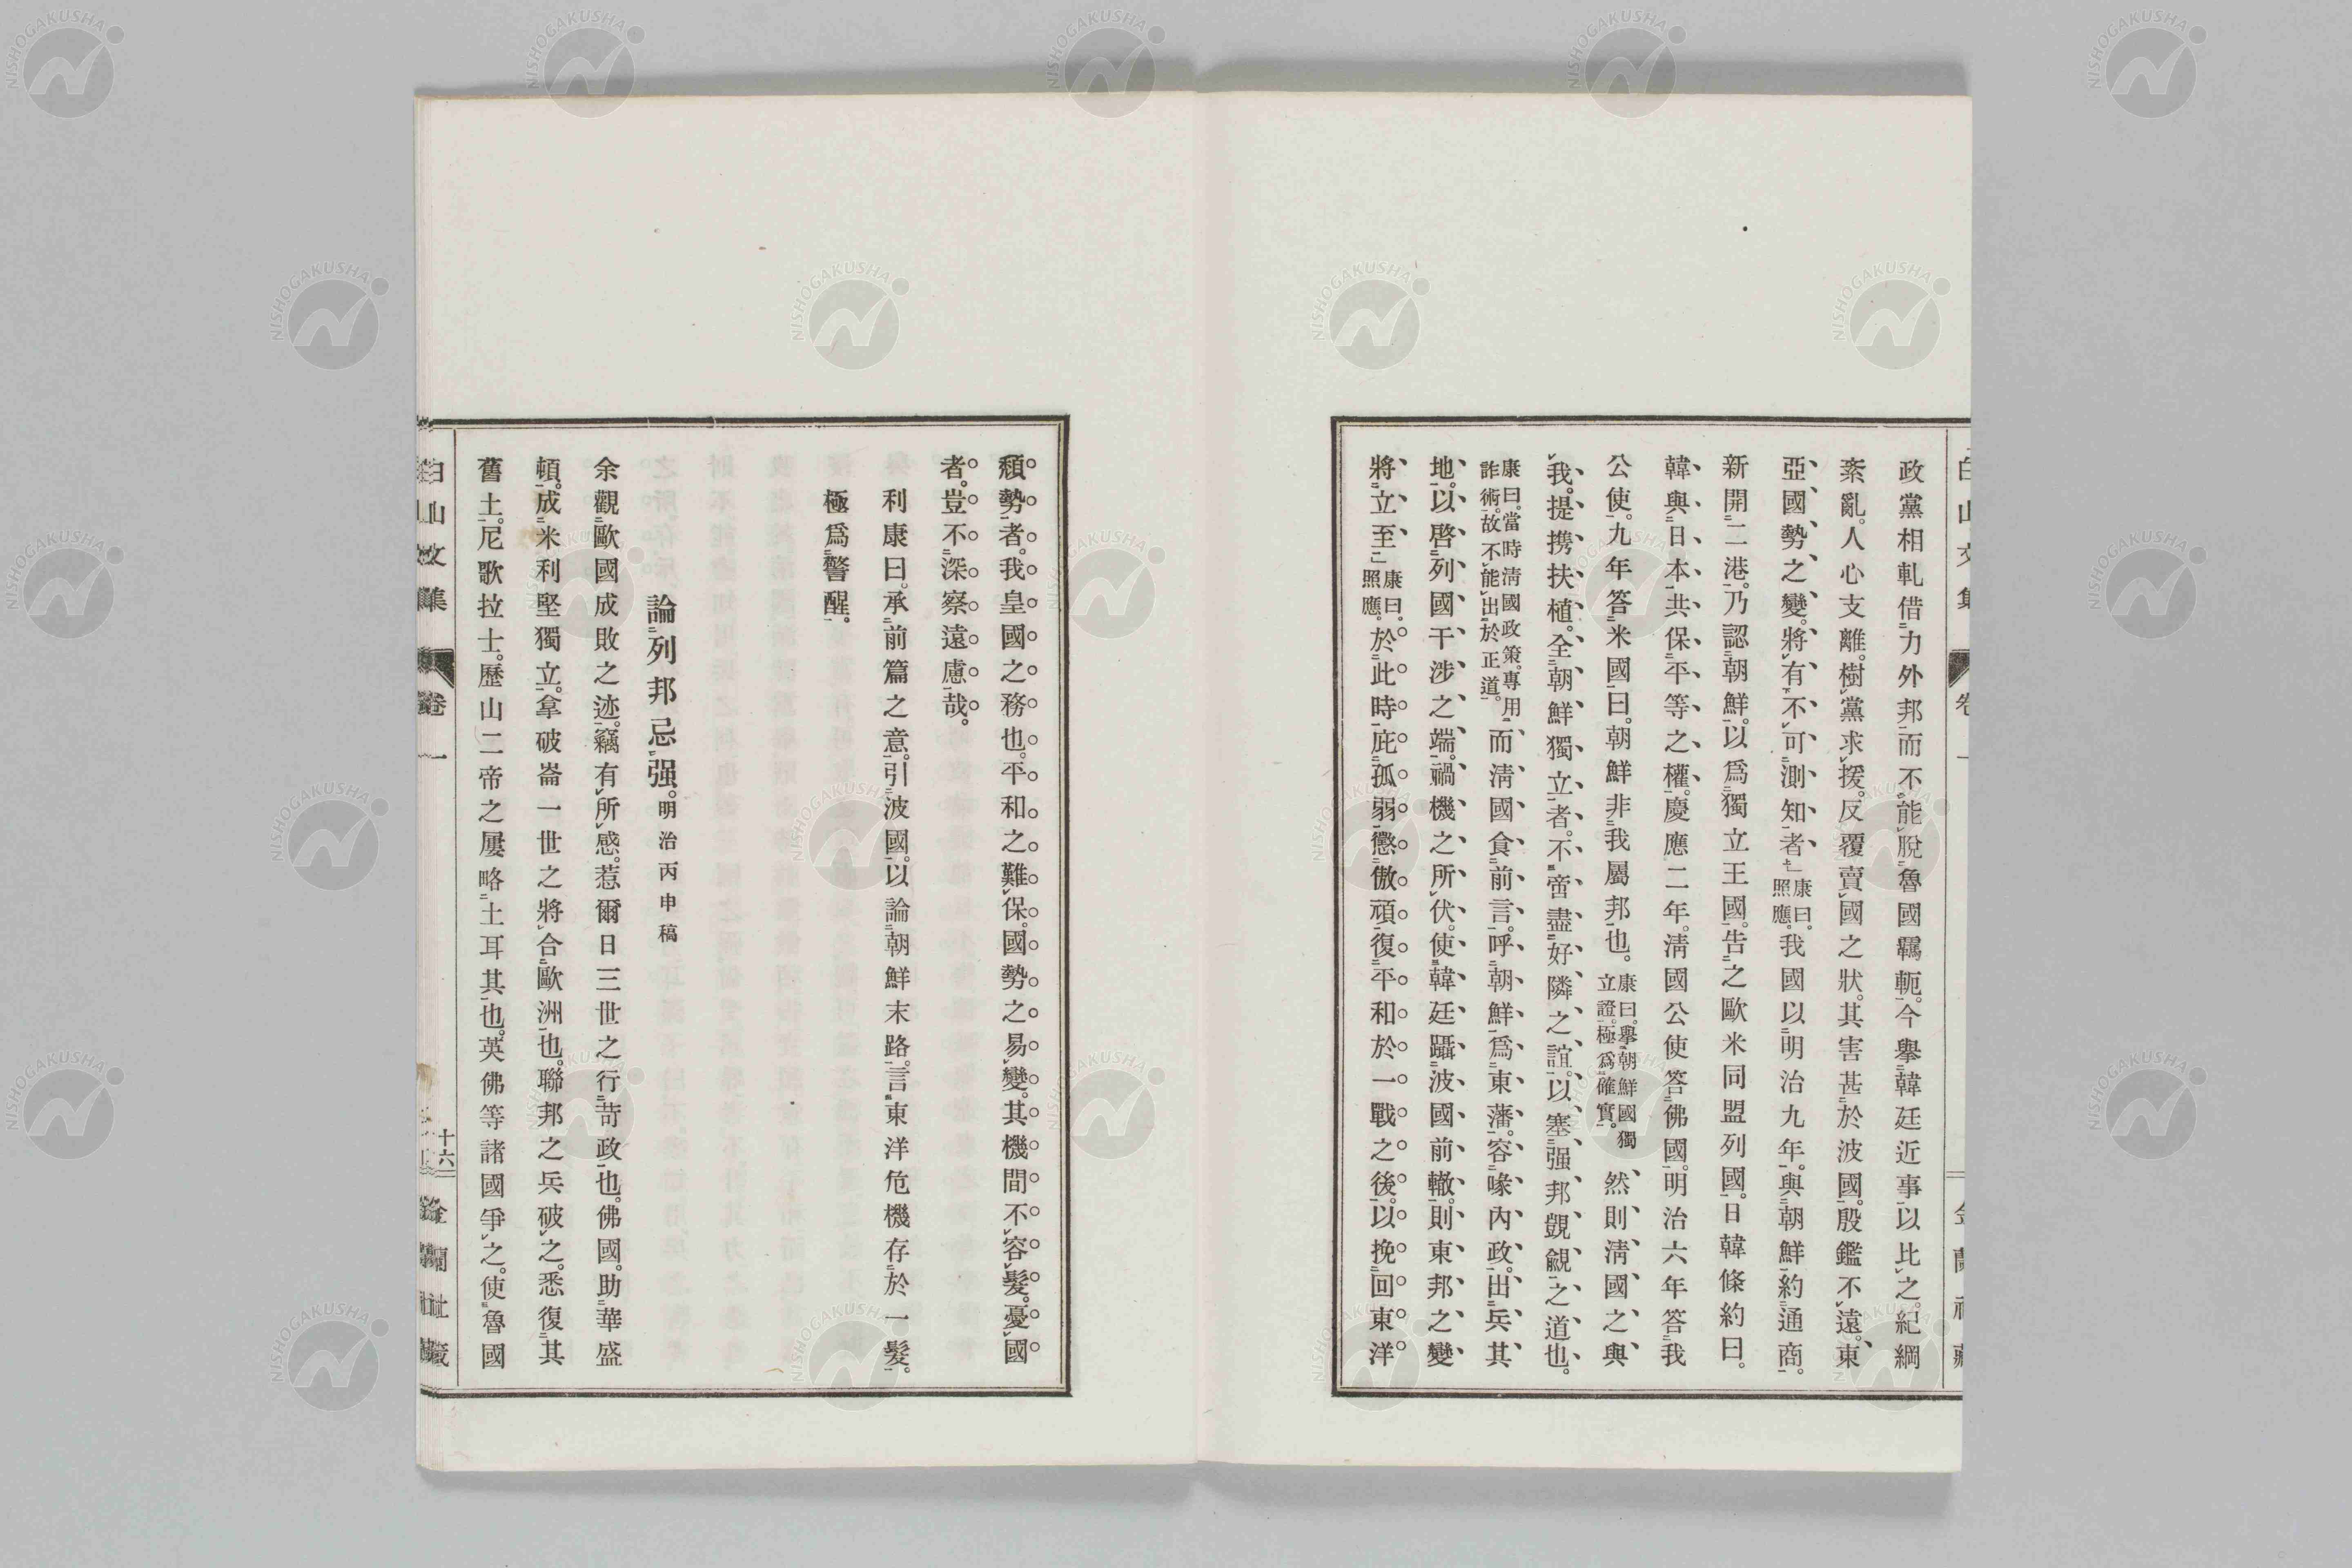 政黨相軋借力外邦而不能脫魯國羈軛。今擧韓廷近事以比之。紀綱
紊亂。人心支離。樹黨求援。反覆賣國之狀。其害甚於波國。殷鑑不遠。東
亞國勢之變。將有不可測知者」康曰。照應。我國以明治九年。與朝鮮約通商。
新開二港。乃認朝鮮。以爲獨立王國。告之歐米同盟列國。日韓條約曰。
韓與日本共保平等之權。慶應二年。淸國公使答佛國。明治六年答我
公使。九年答米國曰。朝鮮非我屬邦也。康曰。擧朝鮮國獨立證。極爲確實。然則淸國之與
我。提携扶植。全朝鮮獨立者。不啻盡好隣之誼。以塞强邦覬覦之道也。
康曰。當時淸國政策。專用詐術。故不能出於正道。而淸國食前言。呼朝鮮爲東藩。容喙內政。出兵其
地。以啓列國干涉之端。禍機之所伏。使韓廷躡波國前轍。則東邦之變
將立至」康曰。照應。於此時庇孤弱懲傲頑。復平和於一戰之後。以挽回東洋
頽勢者。我皇國之務也。平和之難保。國勢之易變。其機間不容髮。憂國
者。豈不深察遠慮哉。
利康曰。承前篇之意。引波國。以論朝鮮末路。言東洋危機存於一髮。
極爲警醒。
論列邦忌强。明治丙申稿
余觀歐國成敗之迹。竊有所感。惹爾日三世之行苛政也。佛國。助華盛
頓。成米利堅獨立。拿破崙一世之將合歐洲也。聯邦之兵破之。悉復其
舊土。尼歌拉士。歷山二帝之屢略土耳其也。英佛等諸國爭之。使魯國
白山文集
卷一
十六
金蘭社藏